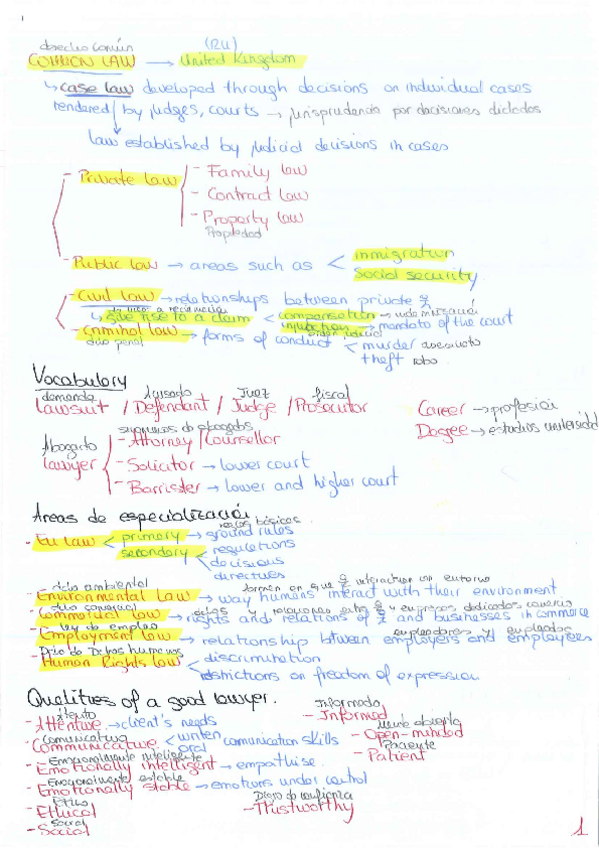 derecho común (RU)
COMMON LAW → United Kingdom
↳ case law developed through decisions on individual cases
rendered/by judges, courts → jurisprudencia por decisiones dictadas
law established by judicial decisions in cases
- Private law - Family law
- Contract law
- Property law
Propiedad
- Public law → areas such as < immigration
social security
- Civil law → relationships between private
↳ give rise to a claim < compensation → indemnizació
injuction → mandato of the court
orden judicial
- Criminal law → forms of conduct < murder asesinato
dcho penal
theft robo
Vocabulary
demanda Acusado Juez fiscal
lawsuit / Defendant / Judge / Prosecutor
Career → profesión
Degree → estudios universidad
Abogado sinónimos de abogados
lawyer - Attorney / Counsellor
- Solicitor → lower court
- Barrister → lower and higher court
Areas de especializació
reglas básicas
- Eu law < primary → ground rules
secondary < regulations
decisions
directives
dcho ambiental forman en que interactúan un entorno
- Environmental law → way humans interact with their environment
- Commercial law → rights and relations of and businesses in commerce
ley de empleo empleadores y empleados
- Employment law → relationship between employers and employees
Dcho de Dchos humanos
- Human Rights law < discrimination
restrictions on freedom of expression
Qualities of a good lawyer.
Atento Informado
- Attentive → client's needs - Informed
Comunicativo Mente abierta
- Communicative < written comunication skills - Open-minded
oral
Emocionalmente inteligente Paciente
- Emotionally intelligent → empathise. - Patient
Emocionalmente estable
- Emotionally stable → emotions under control
Ético Digno de confianza
- Ethical - Trustworthy
Social
- Social
1